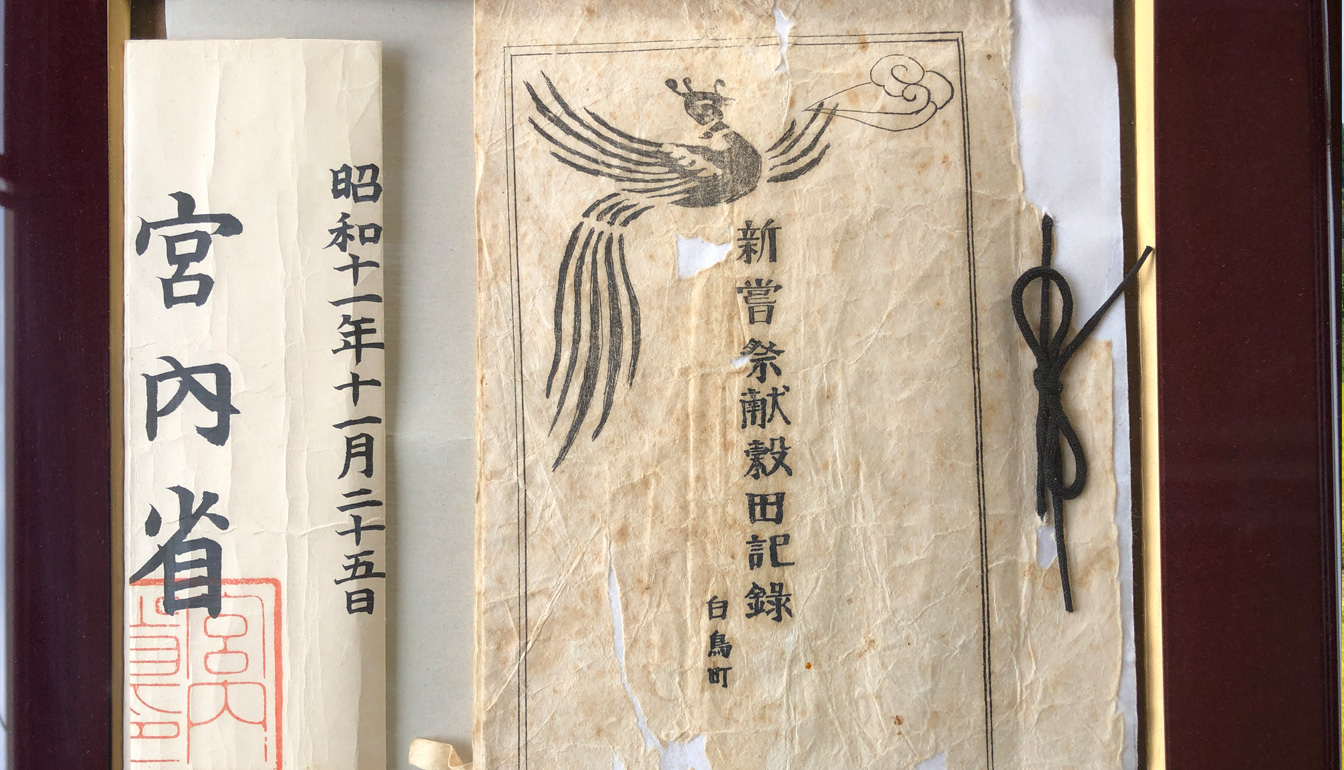 新嘗祭献穀田記錄
白鳥町
昭和十一年十一月二十五日
宮內省